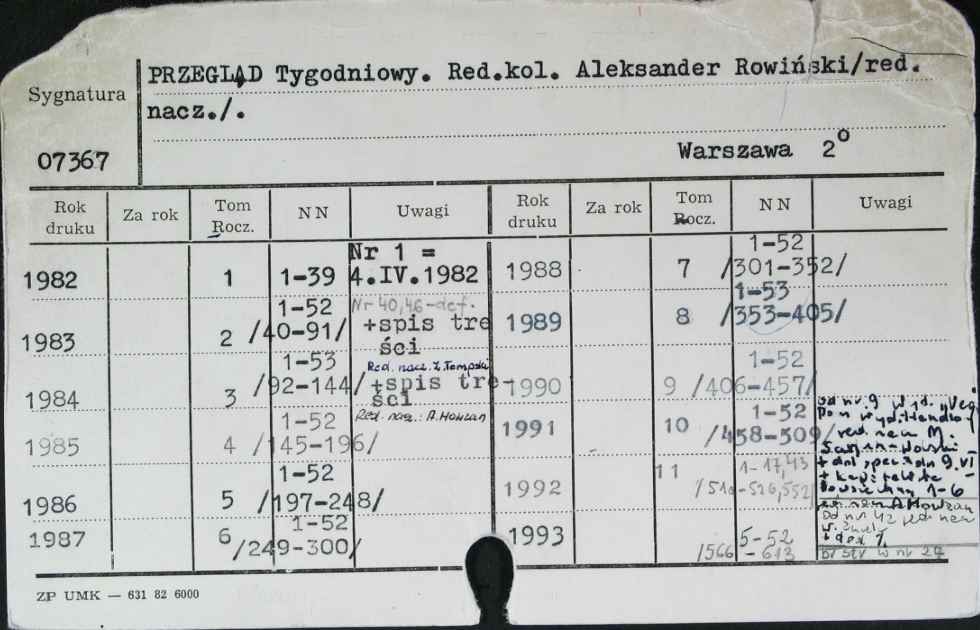 Sygnatura
07367
PRZEGLĄD Tygodniowy. Red.kol. Aleksander Rowiński/red.
nacz./.
Warszawa 2°
Rok druku Za rok Tom Rocz. NN Uwagi Rok druku Za rok Tom Rocz. NN Uwagi
Nr 1 =
1982 1 1-39 4.IV.1982
1-52 Nr 40,46-def.
1983 2 /40-91/ +spis tre
ści
1-53 Red. nacz.
1984 3 /92-144/ +spis tre-
ści
1-52 Red. nacz.: A.
1985 4 /145-196/
1-52
1986 5 /197-248/
1-52
1987 6 /249-300/
1-52
1988 7 /301-352/
1-53
1989 8 /353-405/
1-52
1990 9 /406-457/
1-52 od nr 9
1991 10 /458-509/
red. nacz. M.
11 1-17,43
1992 /510-526,552/
1-6
1993 5-52
/566-613
od nr 42 red nacz
w nr 27
ZP UMK — 631 82 6000